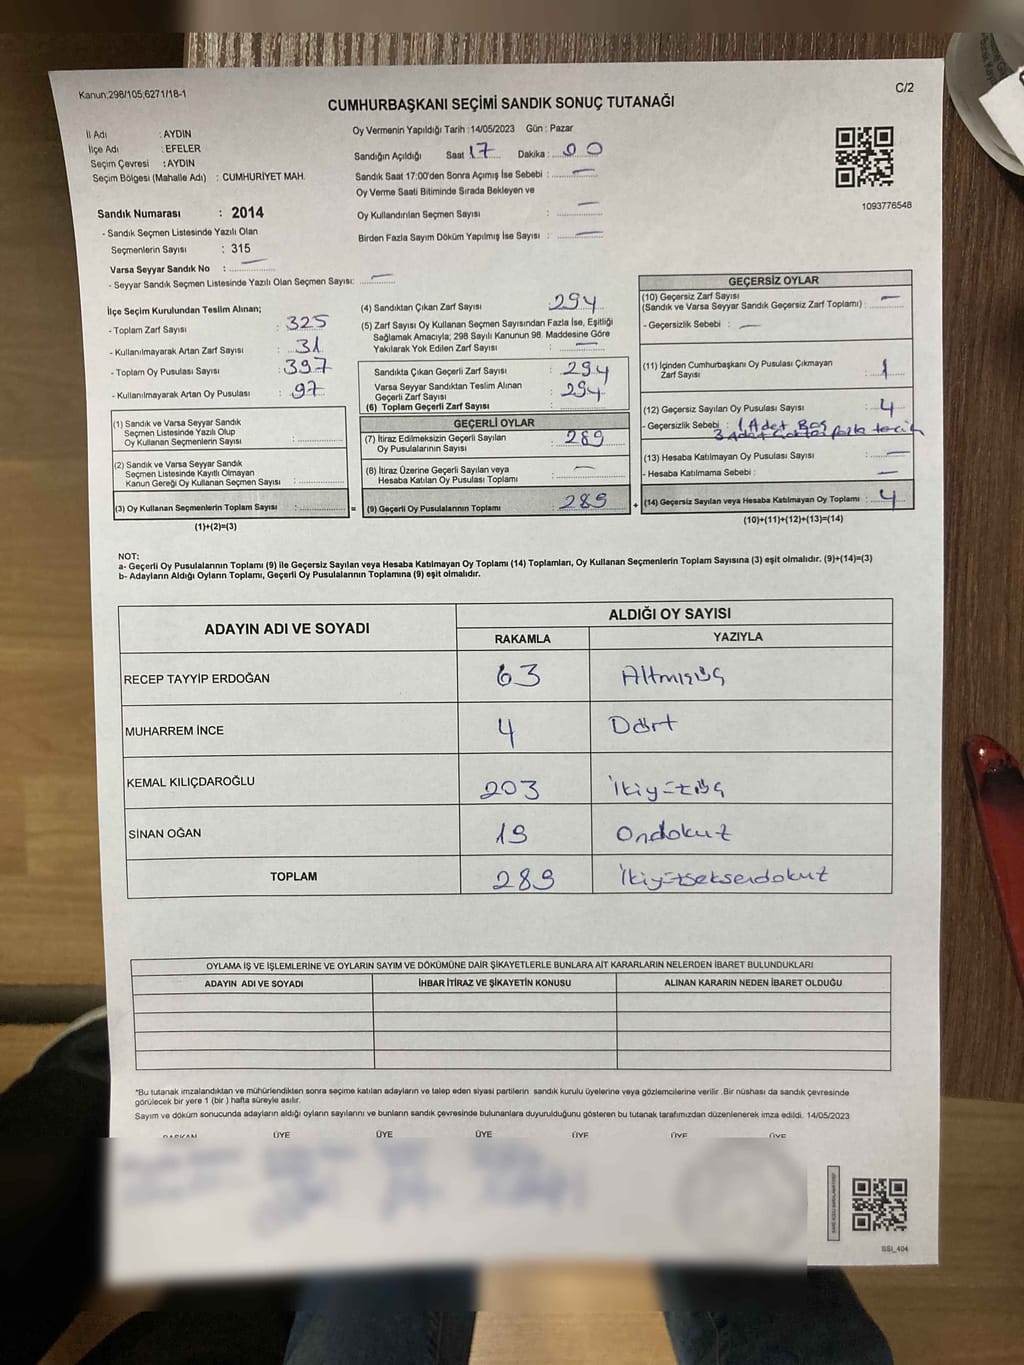 Kanun,298/105;6271/18-1
C/2
CUMHURBAŞKANI SEÇİMİ SANDIK SONUÇ TUTANAĞI
İl Adı : AYDIN
İlçe Adı : EFELER
Seçim Çevresi : AYDIN
Seçim Bölgesi (Mahalle Adı) : CUMHURİYET MAH.
Oy Vermenin Yapıldığı Tarih : 14/05/2023 Gün : Pazar
Sandığın Açıldığı Saat 17 Dakika : 00
Sandık Saat 17:00'den Sonra Açımış İse Sebebi : —
Oy Verme Saati Bitiminde Sırada Bekleyen ve
Oy Kullandırılan Seçmen Sayısı : —
Birden Fazla Sayım Döküm Yapılmış İse Sayısı : —
1093776548
Sandık Numarası : 2014
- Sandık Seçmen Listesinde Yazılı Olan
Seçmenlerin Sayısı : 315
Varsa Seyyar Sandık No : —
- Seyyar Sandık Seçmen Listesinde Yazılı Olan Seçmen Sayısı: —
İlçe Seçim Kurulundan Teslim Alınan;
- Toplam Zarf Sayısı : 325
- Kullanılmayarak Artan Zarf Sayısı : 31
- Toplam Oy Pusulası Sayısı : 397
- Kullanılmayarak Artan Oy Pusulası : 97
(1) Sandık ve Varsa Seyyar Sandık
Seçmen Listesinde Yazılı Olup
Oy Kullanan Seçmenlerin Sayısı :
(2) Sandık ve Varsa Seyyar Sandık
Seçmen Listesinde Kayıtlı Olmayan
Kanun Gereği Oy Kullanan Seçmen Sayısı :
(3) Oy Kullanan Seçmenlerin Toplam Sayısı :
(1)+(2)=(3)
(4) Sandıktan Çıkan Zarf Sayısı : 294
(5) Zarf Sayısı Oy Kullanan Seçmen Sayısından Fazla İse, Eşitliği
Sağlamak Amacıyla; 298 Sayılı Kanunun 98. Maddesine Göre
Yakılarak Yok Edilen Zarf Sayısı : —
Sandıkta Çıkan Geçerli Zarf Sayısı : 294
Varsa Seyyar Sandıktan Teslim Alınan
Geçerli Zarf Sayısı : 294
(6) Toplam Geçerli Zarf Sayısı :
GEÇERLİ OYLAR
(7) İtiraz Edilmeksizin Geçerli Sayılan
Oy Pusulalarının Sayısı : 289
(8) İtiraz Üzerine Geçerli Sayılan veya
Hesaba Katılan Oy Pusulası Toplamı : —
= (9) Geçerli Oy Pusulalarının Toplamı : 289
GEÇERSİZ OYLAR
(10) Geçersiz Zarf Sayısı
(Sandık ve Varsa Seyyar Sandık Geçersiz Zarf Toplamı) : —
- Geçersizlik Sebebi : —
(11) İçinden Cumhurbaşkanı Oy Pusulası Çıkmayan
Zarf Sayısı : 1
(12) Geçersiz Sayılan Oy Pusulası Sayısı : 4
- Geçersizlik Sebebi : 1 Adet Boş
3 Adet fazla tercih
(13) Hesaba Katılmayan Oy Pusulası Sayısı : —
- Hesaba Katılmama Sebebi : —
+ (14) Geçersiz Sayılan veya Hesaba Katılmayan Oy Toplamı : 4
(10)+(11)+(12)+(13)=(14)
NOT:
a- Geçerli Oy Pusulalarının Toplamı (9) ile Geçersiz Sayılan veya Hesaba Katılmayan Oy Toplamı (14) Toplamları, Oy Kullanan Seçmenlerin Toplam Sayısına (3) eşit olmalıdır. (9)+(14)=(3)
b- Adayların Aldığı Oyların Toplamı, Geçerli Oy Pusulalarının Toplamına (9) eşit olmalıdır.
ADAYIN ADI VE SOYADI ALDIĞI OY SAYISI
RAKAMLA YAZIYLA
RECEP TAYYİP ERDOĞAN 63 Altmışüç
MUHARREM İNCE 4 Dört
KEMAL KILIÇDAROĞLU 203 İkiyüzüç
SİNAN OĞAN 19 Ondokuz
TOPLAM 289 İkiyüzseksendokuz
OYLAMA İŞ VE İŞLEMLERİNE VE OYLARIN SAYIM VE DÖKÜMÜNE DAİR ŞİKAYETLERLE BUNLARA AİT KARARLARIN NELERDEN İBARET BULUNDUKLARI
ADAYIN ADI VE SOYADI İHBAR İTİRAZ VE ŞİKAYETİN KONUSU ALINAN KARARIN NEDEN İBARET OLDUĞU
*Bu tutanak imzalandıktan ve mühürlendikten sonra seçime katılan adayların ve talep eden siyasi partilerin sandık kurulu üyelerine veya gözlemcilerine verilir .Bir nüshası da sandık çevresinde
görülecek bir yere 1 (bir ) hafta süreyle asılır.
Sayım ve döküm sonucunda adayların aldığı oyların sayılarını ve bunların sandık çevresinde bulunanlara duyurulduğunu gösteren bu tutanak tarafımızdan düzenlenerek imza edildi. 14/05/2023
BAŞKAN ÜYE ÜYE ÜYE ÜYE ÜYE ÜYE
SSI_404